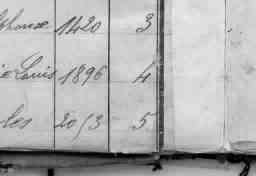 phonse 1420 3
e Louis 1896 4
los 2053 5